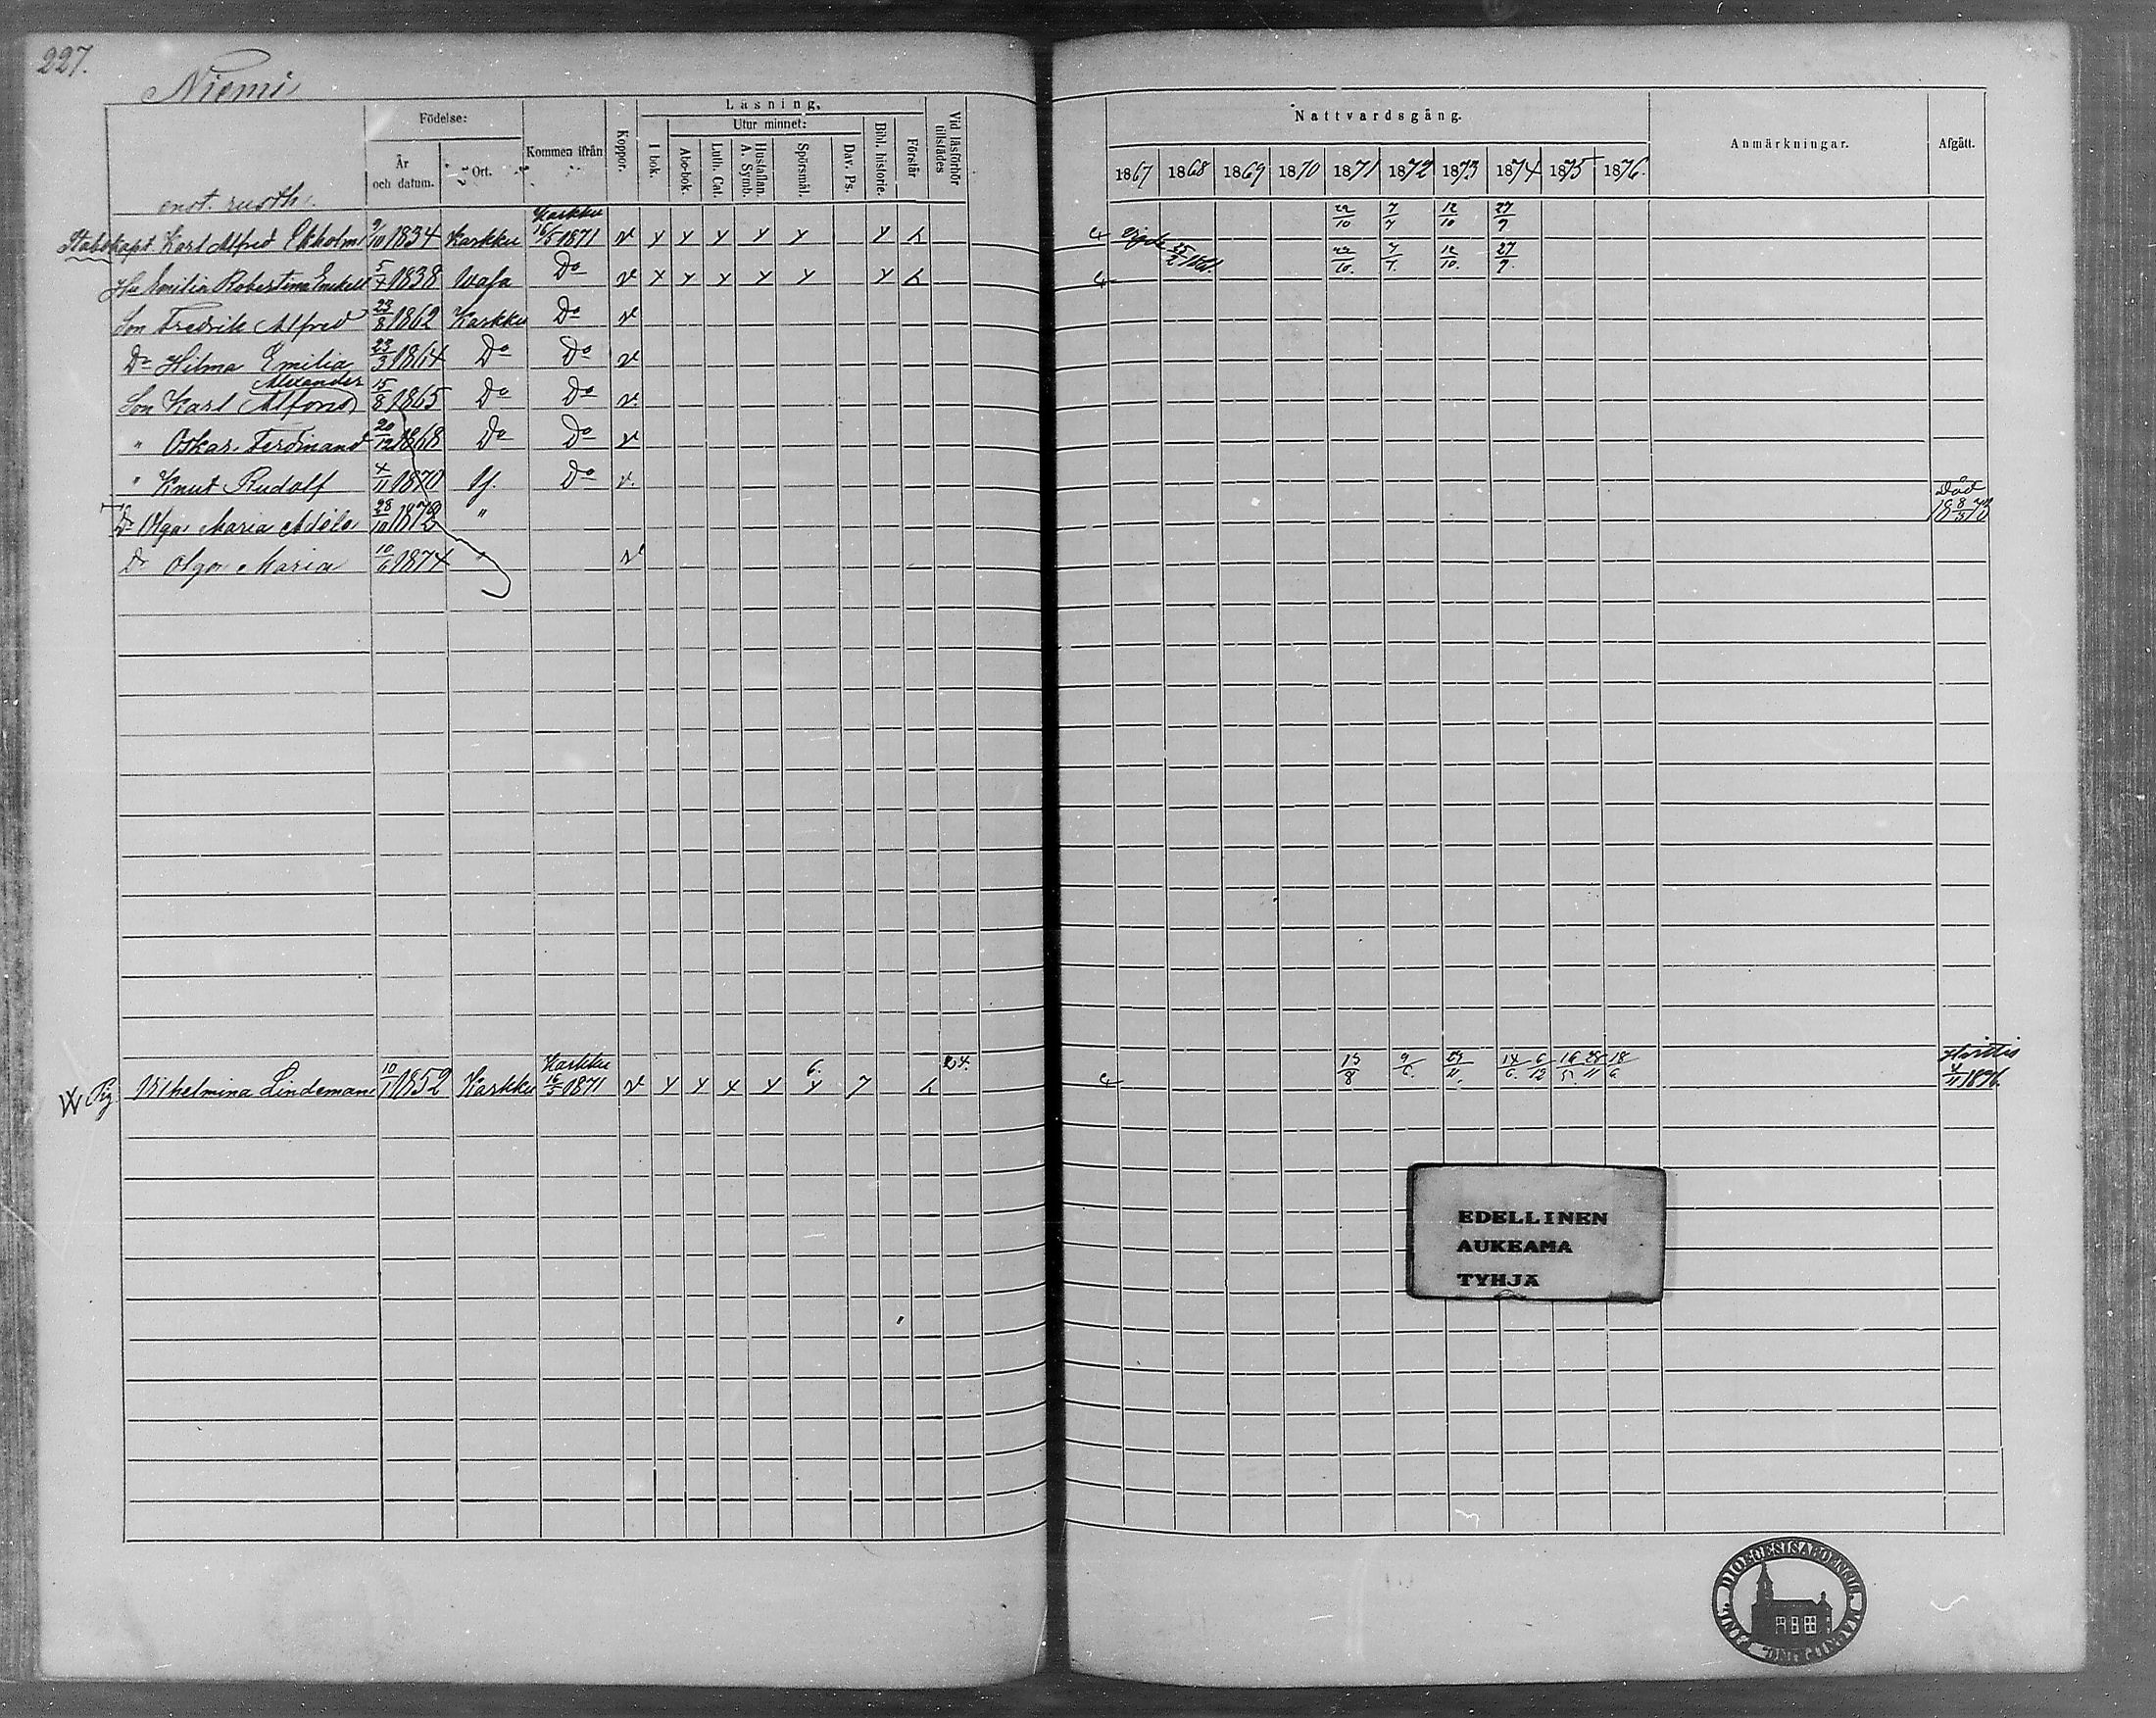 227.
Niemi
Födelse:
År
och datum.
Ort.
Kommen ifrån
Koppor.
Läsning.
I bok.
Utur minnet:
Abc-bok
Luth. Cat.
Hustaflan
A. Symb.
Spörsmål.
Dav. Ps.
Bibl. historie.
Förstår
Vid läsförhör
tillstädes
Nattvardsgång.
1867 1868 1869 1870 1871 1872 1873 1874 1875 1876.
Anmärkningar.
Afgått.
rusth.
Karkku
Stabskapt. Karl Alfred Ekholm 9/10 1834 Karkku 16/5 1871 v y y y y y y 22/10 7/7 12/10 27/9
Hu Emilia Robertina Enckell 5/7 1838 Wasa Do v x y y y y y 25/2 22/10. 7/7. 12/10. 27/9.
Son Fredrik Alfred 23/8 1862 Karkku Do v
Dr Hilma Emilia 23/3 1864 Do Do v
Alexander
Son Karl Alfons 15/8 1865 Do Do v
" Oskar Ferdinand 20/12 1868 Do Do v
" Knut Rudolf 4/11 1870 Do v
Död
Dr Olga Maria Adéle 28/10 1872 " 18 8/3 73
Dr Olga Maria 10/6 1874 " v
Karkku 6. 24. Hvittis
Pig Vilhelmina Lindeman 10/1 1852 Karkku 16/5 1871 v y y x y y 7 13/8 9/6. 14/6. 6/12 28/11 18/6 1876.
EDELLINEN
AUKEAMA
TYHJÄ